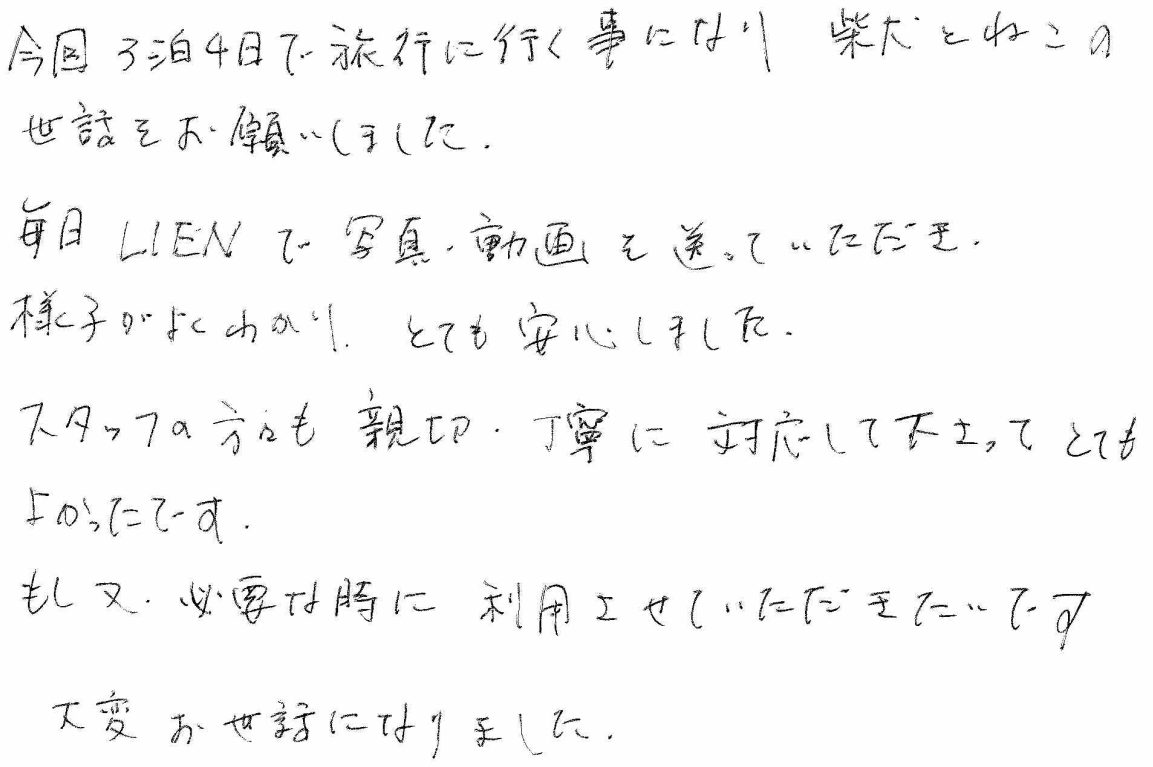 今回 3泊4日で旅行に行く事になり 柴犬とねこの
世話をお願いしました.
毎日 LIEN で 写真.動画を送っていただき.
様子がよくわかり. とても安心しました.
スタッフの方々も 親切.丁寧に 対応して下さって とても
よかったです.
もし又.必要な時に 利用させていただきたいです
大変お世話になりました.